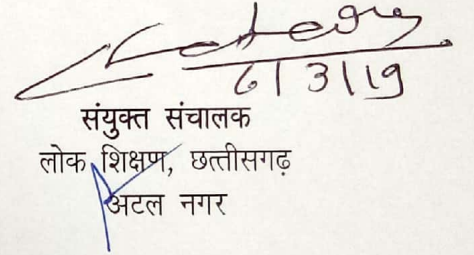 6/3/19
संयुक्त संचालक
लोक शिक्षण, छत्तीसगढ़
अटल नगर